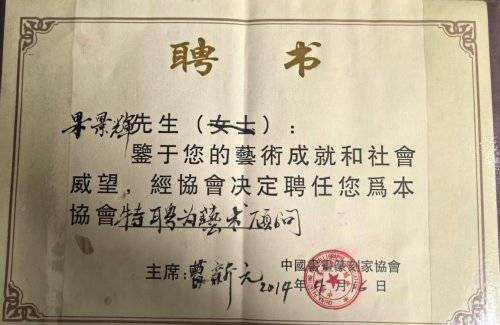 聘书
景輝先生（女士）：
鉴于您的藝術成就和社會
威望，經協會决定聘任您爲本
協會特聘为藝术顾问
主席：新元
中國書畫篆刻家協會
2014年月日